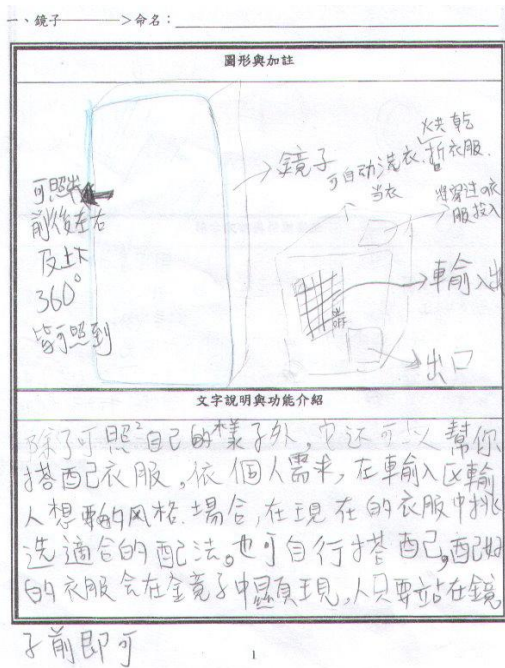 一、鏡子————>命名：
圖形與加註
可照出
前後左右
及上下
360°
皆可照到
鏡子
烘乾
可自动洗衣.摺衣服.
当衣
將穿过の衣
服投入
輸入
出口
文字說明與功能介紹
除了可照²自己的樣子外，它还可以幫你
搭配衣服。依個人需求，在輸入区輸
入想要的风格.場合，在現在的衣服中挑
选適合的配法。也可自行搭配，配好
的衣服会在鏡子中顯現，人只要站在鏡
子前即可
1